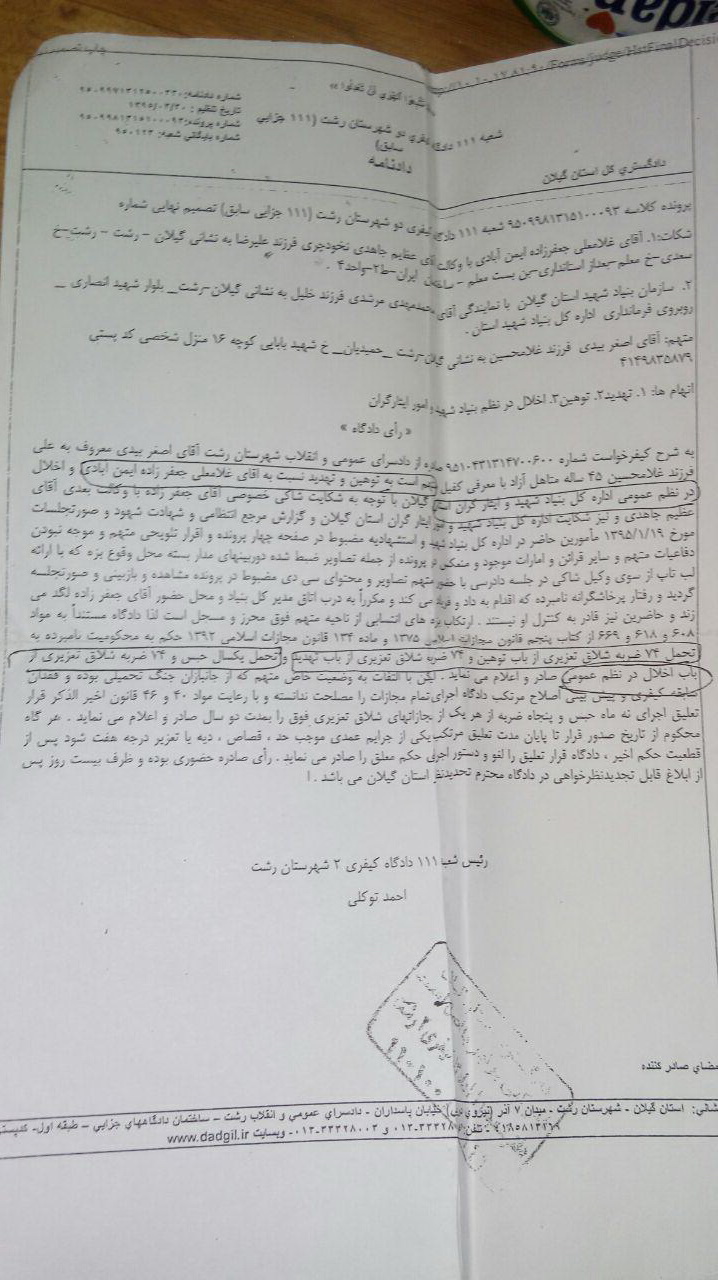 10:17:81-90/Forms/judge/HstFinalDecisi
چاپ تصمیم
شماره دادنامه:
تاریخ تنظیم : ۱۳۹۵/۰۳/۳۰
شماره پرونده:
شماره بایگانی شعبه: ۹۵۰۱۲۳
شعبه ۱۱۱ دادگاه کیفری دو شهرستان رشت (۱۱۱ جزایی
سابق)
دادنامه
دادگستری کل استان گیلان
پرونده کلاسه ۹۵۰۹۹۸۱۳۱۵۱۰۰۰۹۳ شعبه ۱۱۱ دادگاه کیفری دو شهرستان رشت (۱۱۱ جزایی سابق) تصمیم نهایی شماره
شکات:۱. آقای غلامعلی جعفرزاده ایمن آبادی با وکالت آقای عظیم جاهدی نخودچری فرزند علیرضا به نشانی گیلان – رشت – رشت–خ
سعدی–خ معلم–بعداز استانداری–بن بست معلم – ساختمان ایران–ط۲–واحد۴ .
۲. سازمان بنیاد شهید استان گیلان با نمایندگی آقای محمدمهدی مرشدی فرزند خلیل به نشانی گیلان–رشت_ بلوار شهید انصاری _
روبروی فرمانداری اداره کل بنیاد شهید استان .
متهم: آقای اصغر بیدی فرزند غلامحسین به نشانی گیلان–رشت _حمیدیان_ خ شهید بابایی کوچه ۱۶ منزل شخصی کد پستی
۴۱۴۹۸۳۵۸۷۹
اتهام ها: ۱. تهدید۲. توهین۳. اخلال در نظم بنیاد شهید و امور ایثارگران
« رأی دادگاه »
به شرح کیفرخواست شماره ۹۵۱۰۴۳۱۳۱۴۷۰۰۶۰۰ صادره از دادسرای عمومی و انقلاب شهرستان رشت آقای اصغر بیدی معروف به علی
فرزند غلامحسین ۴۵ ساله متاهل آزاد با معرفی کفیل متهم است به توهین و تهدید نسبت به آقای غلامعلی جعفر زاده ایمن آبادی و اخلال
در نظم عمومی اداره کل بنیاد شهید و ایثار گران استان گیلان با توجه به شکایت شاکی خصوصی آقای جعفر زاده با وکالت بعدی آقای
عظیم جاهدی و نیز شکایت اداره کل بنیاد شهید و امور ایثار گران استان گیلان و گزارش مرجع انتظامی و شهادت شهود و صورتجلسات
مورخ ۱۳۹۵/۱/۱۹ مأمورین حاضر در اداره کل بنیاد شهید و استشهادیه مضبوط در صفحه چهار پرونده و اقرار تلویحی متهم و موجه نبودن
دفاعیات متهم و سایر قرائن و امارات موجود و منعکس در پرونده از جمله تصاویر ضبط شده دوربینهای مدار بسته محل وقوع بزه که با ارائه
لب تاپ از سوی وکیل شاکی در جلسه دادرسی با حضور متهم تصاویر و محتوای سی دی مضبوط در پرونده مشاهده و بازبینی و صورتجلسه
گردید و رفتار پرخاشگرانه نامبرده که اقدام به داد و فریاد می کند و مکرراً به درب اتاق مدیر کل بنیاد و محل حضور آقای جعفر زاده لگد می
زند و حاضرین نیز قادر به کنترل او نیستند . ارتکاب بزه های انتسابی از ناحیه متهم فوق محرز و مسجل است لذا دادگاه مستنداً به مواد
۶۰۸ و ۶۱۸ و ۶۶۹ از کتاب پنجم قانون مجازات اسلامی ۱۳۷۵ و ماده ۱۳۴ قانون مجازات اسلامی ۱۳۹۲ حکم به محکومیت نامبرده به
تحمل ۷۴ ضربه شلاق تعزیری از باب توهین و ۷۴ ضربه شلاق تعزیری از باب تهدید و تحمل یکسال حبس و ۷۴ ضربه شلاق تعزیری از
باب اخلال در نظم عمومی صادر و اعلام می نماید . لیکن با التفات به وضعیت خاص متهم که از جانبازان جنگ تحمیلی بوده و فقدان
سابقه کیفری و پیش بینی اصلاح مرتکب دادگاه اجرای تمام مجازات را مصلحت ندانسته و با رعایت مواد ۴۰ و ۴۶ قانون اخیر الذکر قرار
تعلیق اجرای نه ماه حبس و پنجاه ضربه از هر یک از مجازاتهای شلاق تعزیری فوق را بمدت دو سال صادر و اعلام می نماید . هر گاه
محکوم از تاریخ صدور قرار تا پایان مدت تعلیق مرتکب یکی از جرایم عمدی موجب حد ، قصاص ، دیه یا تعزیر درجه هفت شود پس از
قطعیت حکم اخیر ، دادگاه قرار تعلیق را لغو و دستور اجرای حکم معلق را صادر می نماید . رأی صادره حضوری بوده و ظرف بیست روز پس
از ابلاغ قابل تجدیدنظرخواهی در دادگاه محترم تجدیدنظر استان گیلان می باشد . ا
رئیس شعبه ۱۱۱ دادگاه کیفری ۲ شهرستان رشت
احمد توکلی
امضای صادر کننده
نشانی: استان گیلان - شهرستان رشت - میدان ۷ آذر (نیروی دریایی) خیابان پاسداران - دادسرای عمومی و انقلاب رشت – ساختمان دادگاههای جزایی – طبقه اول- کدپستی
و ۳۳۳۲۸۰۰۳-۰۱۳- وبسایت www.dadgil.ir